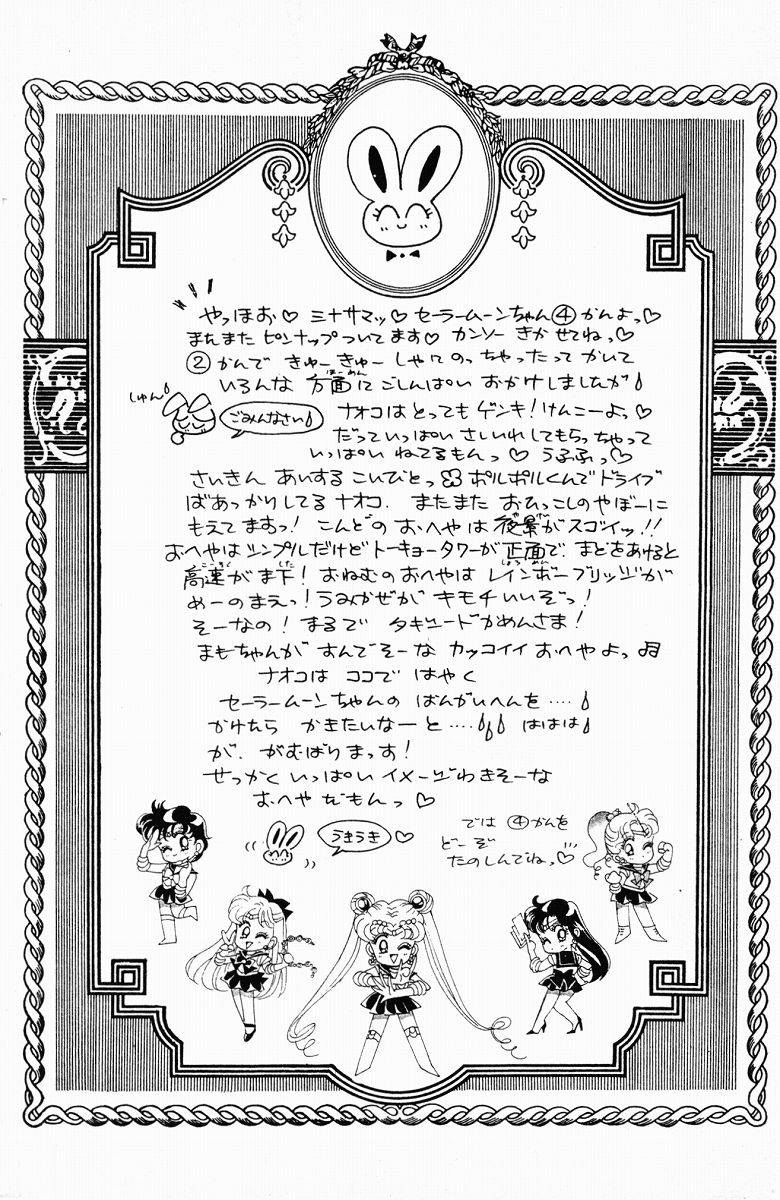 やっほお♡ ミナサマッ♡ セーラームーンちゃん④かんよっ♡
またまた ピンナップついてます♡ カンソー きかせてねっ♡
②かんで きゅーきゅーしゃにのっちゃったってかいて
いろんな 方面に ごしんぱい おかけしましたが
ほーめん
しゅん
ごみんなさい
ナオコはとってもゲンキ!けんこーよっ♡
だっていっぱい さしいれしてもらっちゃって
いっぱい ねてるもんっ♡ うふふっ♡
さいきん あいするこいびとっ ポルポルくんでドライブ
ばあっかりしてるナオコ. またまた おひっこしのやぼーに
もえてますっ! こんどの おへやは 夜景がスゴイッ!!
やけい
おへやはシンプルだけどトーキョータワーが正面で、まどをあけると
しょーめん
高速が ま下! おねむのおへやは レインボーブリッジが
こーそく
した
めーのまえっ! うみかぜが キモチいいぞっ!
そーなの! まるで タキシードかめんさま!
まもちゃんが すんでそーな カッコイイ おへやよっ♫
ナオコは ココで はやく
セーラームーンちゃんの ばんがいへんを‥‥
かけたら かきたいなーと‥‥ ははは
が、がむばりまっす!
せっかく いっぱい イメージわきそーな
おへや だもんっ♡
うきうき♡
では ④かんを
どーぞ
たのしんでねっ♡